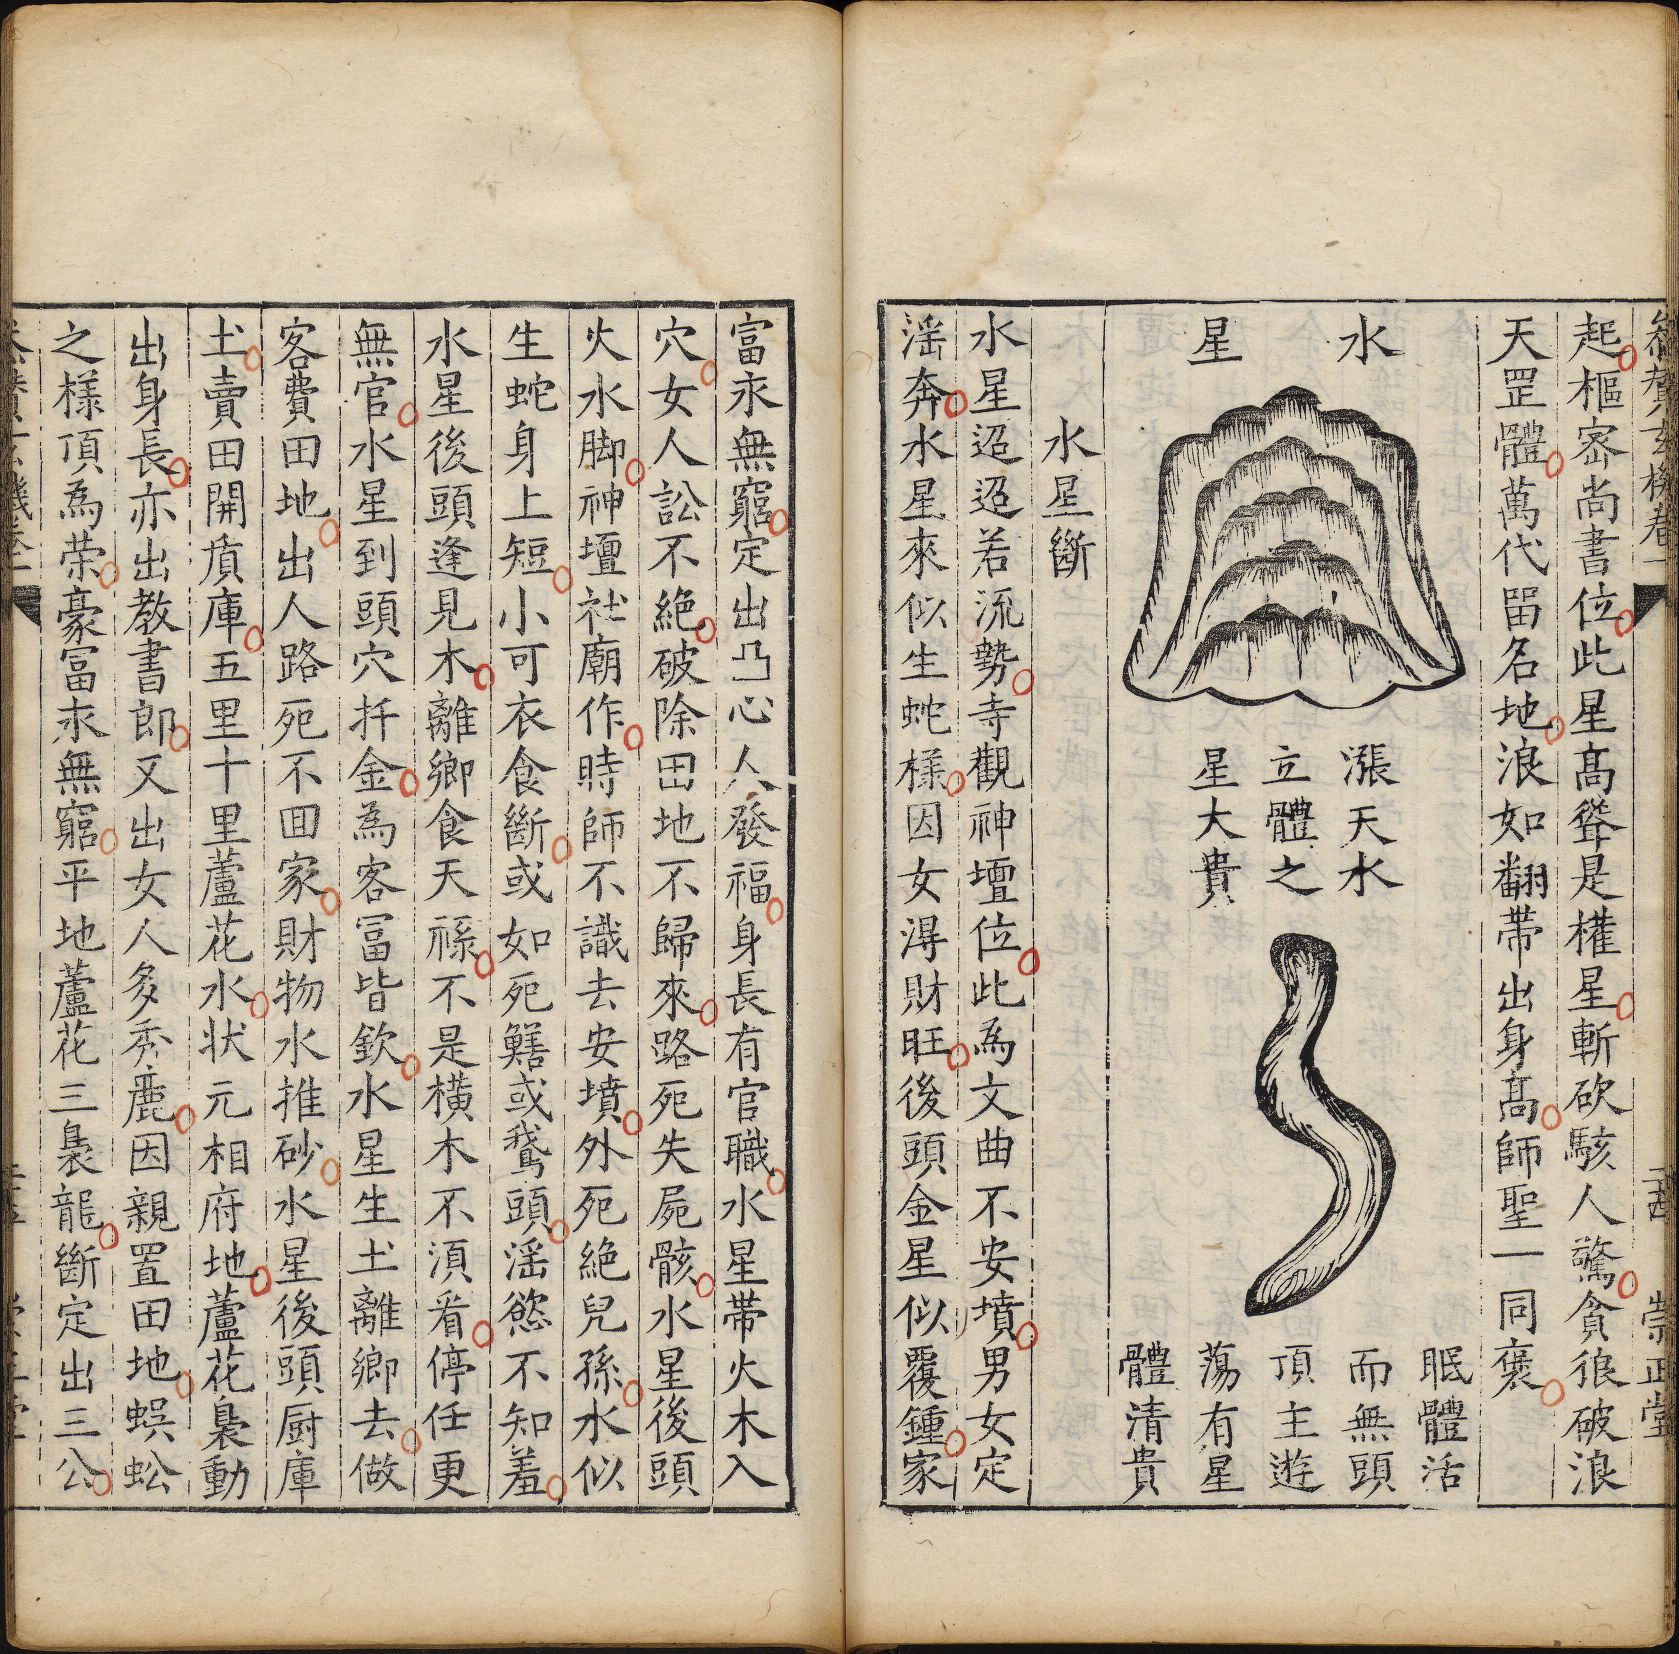 起樞宻尚書位此星髙聳是權星斬砍駭人驚貪狼破浪
天罡體萬代畱名地浪如翻帶出身髙師聖一同褒
水星
漲天水
立體之
星大貴
眠體活
而無頭
頂主遊
蕩有星
體清貴
水星斷
水星迢迢若流勢寺觀神壇位此為文曲不安墳男女定
滛奔水星來似生蛇樣因女淂財旺後頭金星似覆鍾家
富永無窮定出凸心人發福身長有官職水星帶火木入
穴女人訟不絶破除田地不歸來路死失屍骸水星後頭
火水脚神壇社廟作時師不識去安墳外死絶兒孫水似
生蛇身上短小可衣食斷或如死鱔或鵞頭滛慾不知羞
水星後頭逢見木離鄉食天祿不是橫木不湏看停任更
無官水星到頭穴扦金為客冨皆欽水星生土離鄉去做
客費田地出人路死不囬家財物水推砂水星後頭厨庫
土賣田開質庫五里十里蘆花水状元相府地蘆花裊動
出身長亦出教書郎又出女人多秀麗因親置田地蜈蚣
之樣頂為荣豪冨永無窮平地蘆花三裊龍斷定出三公
崇正堂